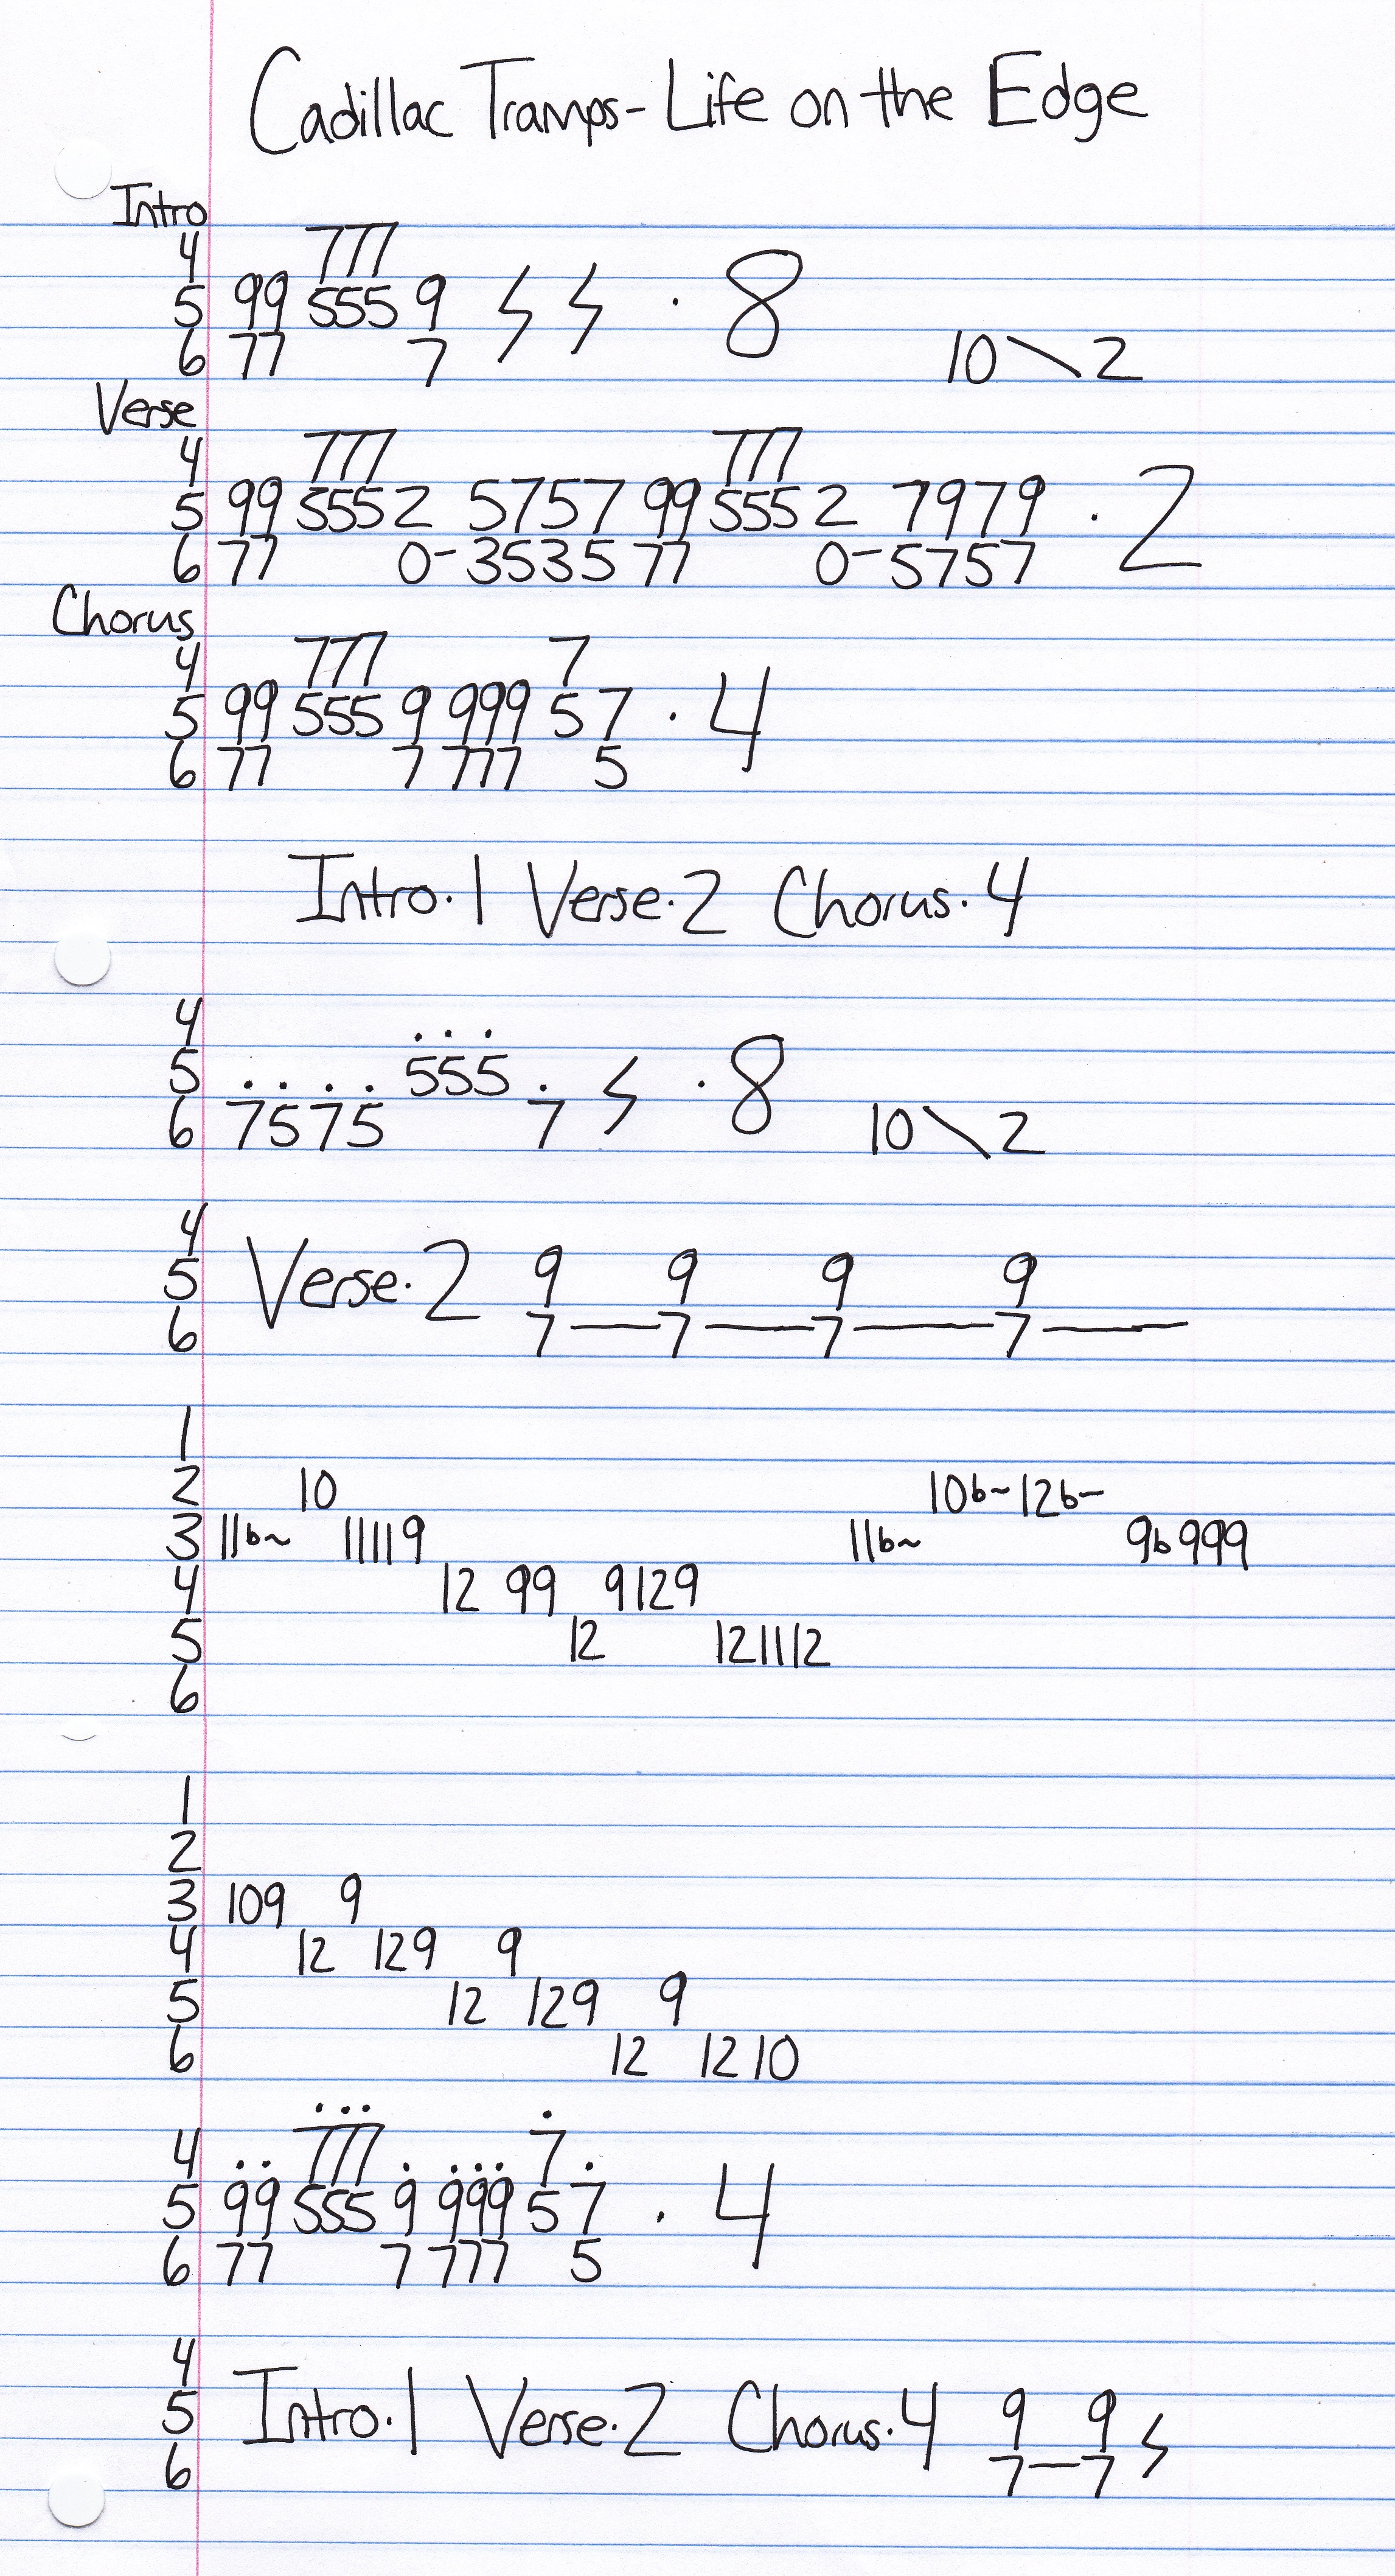 Cadillac Tramps - Life on the Edge
Intro
4 777
5 99 555 9 ϟ ϟ · 8
6 77 7 10\2
Verse
4 777 777
5 99 555 2 5757 99 555 2 7979 · 2
6 77 0-3535 77 0-5757
Chorus
4 777 7
5 99 555 9 999 5 7 · 4
6 77 7 777 5
Intro·1 Verse·2 Chorus·4
4 . . .
5 . . . . 555 . ϟ · 8
6 7575 7 10\2
4
5 Verse·2 9 9 9 9
6 7—7—7—7—
1
2 10 10b~12b~
3 11b~ 11119 11b~ 9b999
4 12 99 9129
5 12 121112
6
1
2
3 109 9
4 12 129 9
5 12 129 9
6 12 1210
. . . .
4 . . 777 . . . . 7 .
5 99 555 9 999 5 7 · 4
6 77 7 777 5
4
5 Intro·1 Verse·2 Chorus·4 9 9 ϟ
6 7—7